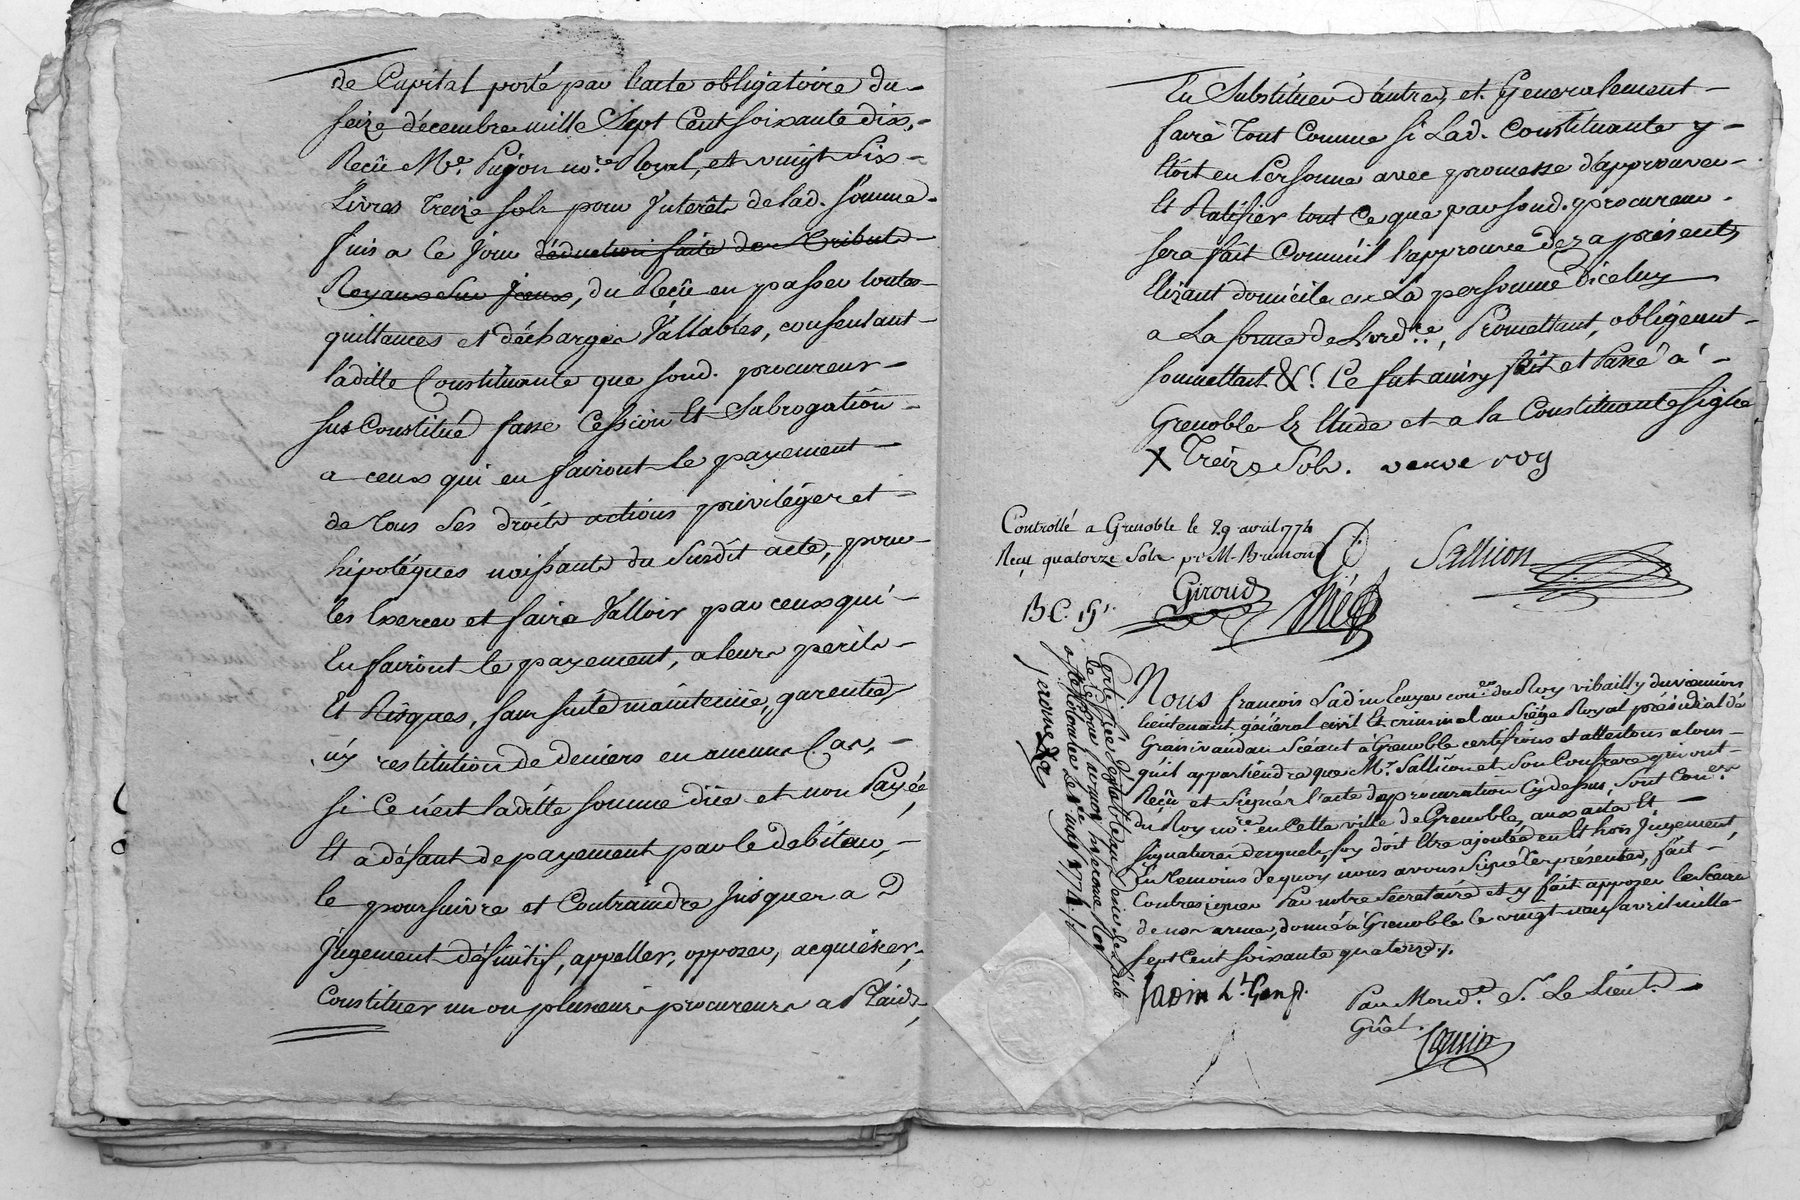 de Capital porté par l'acte obligatoire du
seize décembre mille Sept Cent soixante dix,
Reçû Me. Pujon nore. Royal, et vingt Six
Livres Treize sols pour Jnterêts de lad. somme
juis a Ce Jour déduction faite des Tributs
Royaux Sur Jceux, du Reçû en passer toutes
quittances et décharges Vallables, consentant
laditte Constituante que sond. procureur
sus Constitué fasse Cession Et Subrogation
a ceux qui en fairont le payement
de tous Ses droits actions privilèges et
hipotéques naissants du Susdit acte, pour
les Exercer et faire Valloir par ceux qui
En fairont le payement, a leurs perils
Et Risques, sans suitte maintenüe, garentie,
ny restitution de deniers en aucuns Cas,
si Ce n'est laditte somme düe et non Payée,
Et a défaut de payement par le debiteur,
le poursuivre et Contraindre Jusques a
Jugement définitif, appeller, opposer, acquiescer,
Constituer un ou plusieurs procureurs a Plaids,
En Substituer d'autres, et Generalement
faire Tout Comme si Lad. Constituante y
Etoit en Personne avec promesse d'approuver
Et Ratifier tout Ce que par sond. procureur
sera fait Comm'il l'approuve dez a présents
Elizant domicile en La personne d'iceluy
a La forme de L'ordce., Promettant, obligeant
soumettant &c. Ce fut ainsy fait et Passé a
Grenoble Ez Etude et a la Constituante signé
X Treize Sols. veuve roy
Controllé a Grenoble le 29 avril 1774
Reçu quatorze Sols pr M. Brumond
Sallicon
Giroud
B.C. g.
Nous francois Jadin Ecuyer coner. du Roy vibailly du viennois
lieutenant général civil Et criminel au Siége Royal présidial de
Graisivaudan Séant à Grenoble certifions et attestons a tous
qu'il appartiendra que Mr. Sallicon et Son Confrere qui ont
Reçû et Signés l'acte de procuration Cy dessus, Sont Coners.
du Roy nores. en Cette ville de Grenoble, aux actes Et
signatures desquels, foy doit Etre ajoutée en Et hors Jugement,
En temoins de quoy nous avons Signé Ces présentes, fait
Contresigner Par notre Secretaire et y fait apposer le Sceau
de nos armes, donné à Grenoble le vingt neuf avril mille
sept Cent soixante quatorze.
Jadin Lt. Gen.
Par Mond. Sr. Le Lieut.
Gñal.